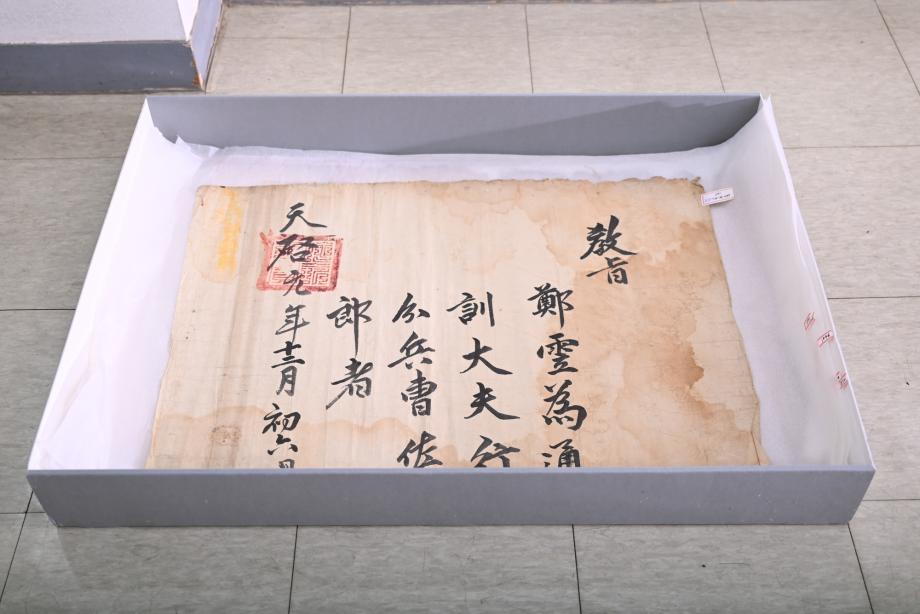 教旨
鄭霊為通
訓大夫行
兵曹佐
郎者
天啓元年十二月初六日